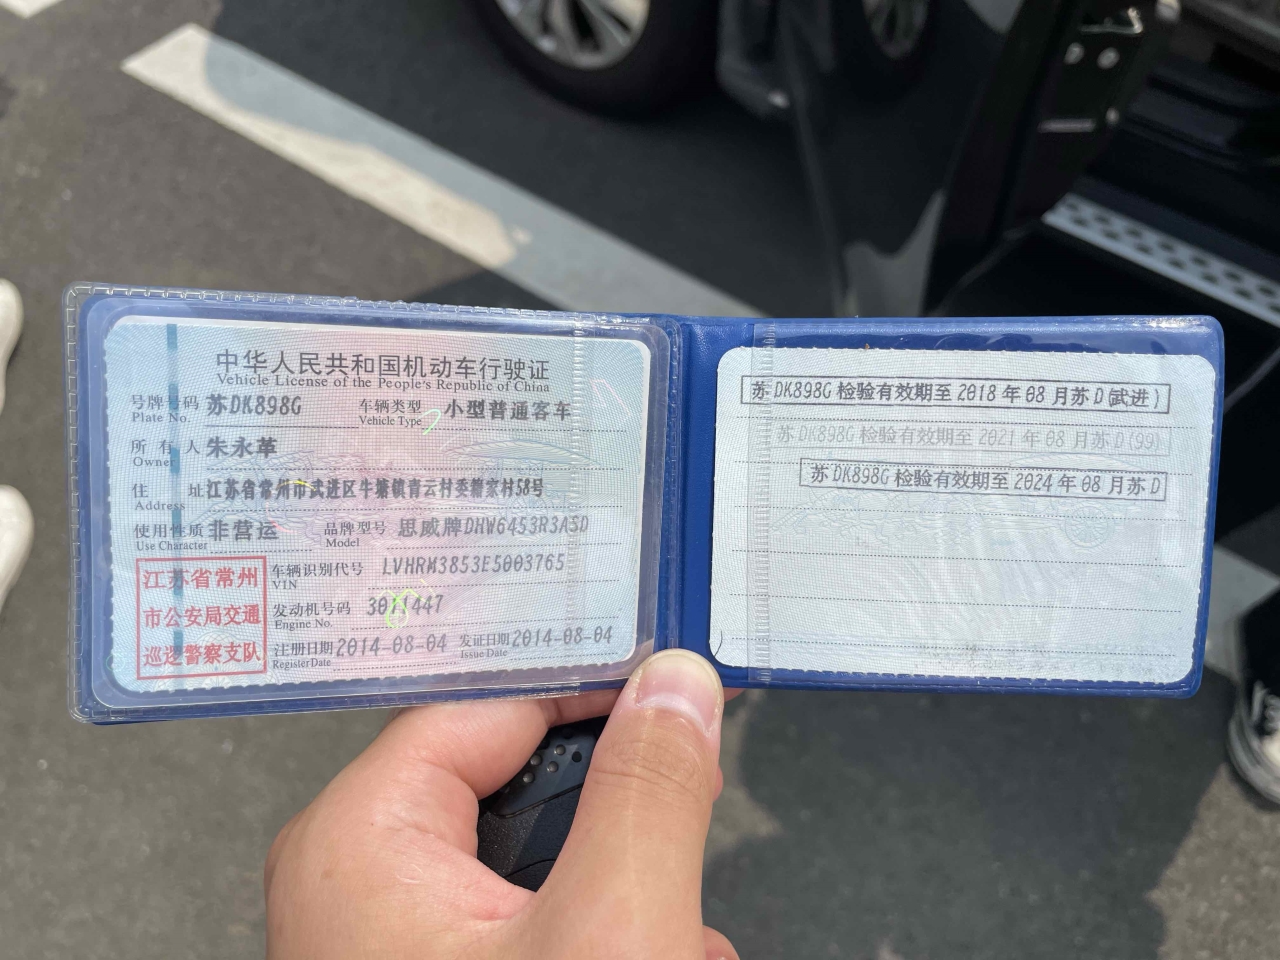 中华人民共和国机动车行驶证
Vehicle License of the People's Republic of China
号牌号码 苏DK898G 车辆类型 小型普通客车
Plate No. Vehicle Type
所有人 朱永革
Owner
住址 江苏省常州市武进区牛塘镇青云村委糖家村58号
Address
使用性质 非营运 品牌型号 思威牌DHW6453R3ASD
Use Character Model
江苏省常州
市公安局交通
巡逻警察支队
车辆识别代号 LVHRM3853E5003765
VIN
发动机号码
Engine No.
注册日期 2014-08-04 发证日期 2014-08-04
Register Date Issue Date
苏DK898G 检验有效期至 2018 年 08 月苏D(武进)
苏DK898G 检验有效期至 2021 年 08 月苏D(99)
苏DK898G 检验有效期至 2024 年 08 月苏D